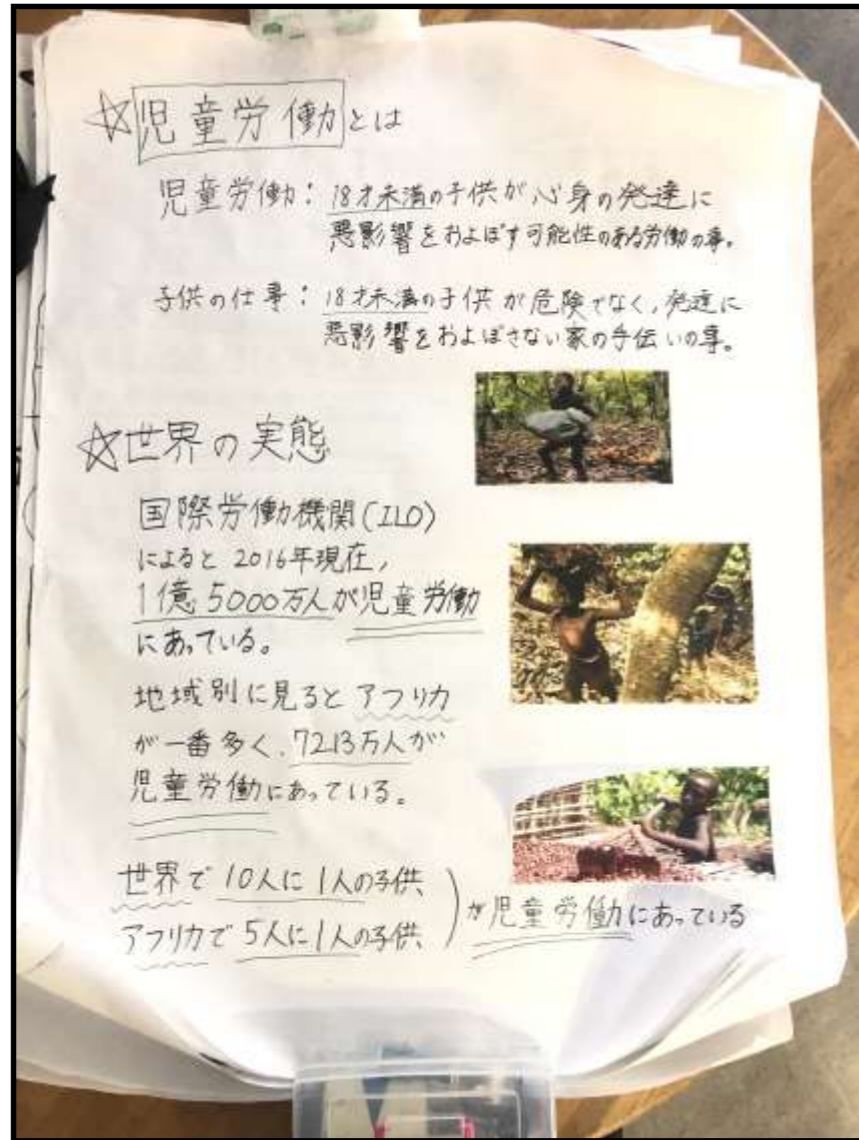 ☆児童労働とは
児童労働：18才未満の子供が心身の発達に
悪影響をおよぼす可能性のある労働の事。
子供の仕事：18才未満の子供が危険でなく、発達に
悪影響をおよぼさない家の手伝いの事。
☆世界の実態
国際労働機関(ILO)
によると2016年現在，
1億5000万人が児童労働
にあっている。
地域別に見るとアフリカ
が一番多く、7213万人が
児童労働にあっている。
世界で10人に1人の子供
アフリカで5人に1人の子供
)が児童労働にあっている